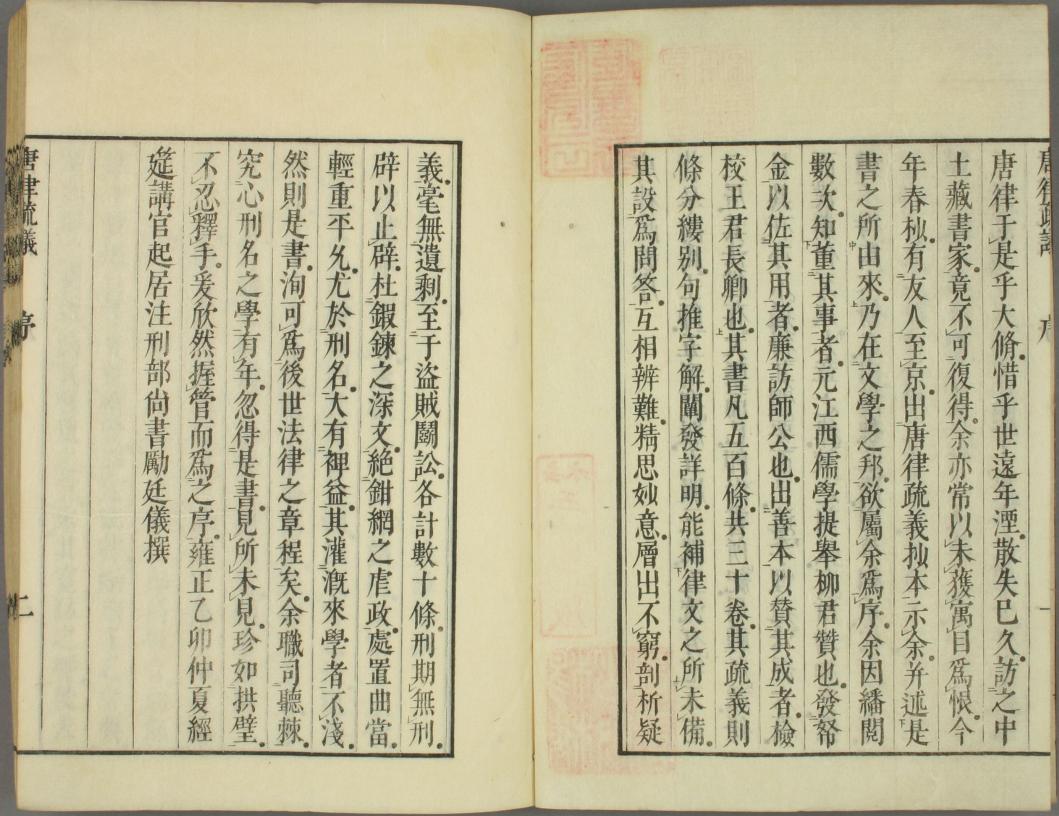 唐律于是乎大脩惜乎世遠年湮散失已久訪之中
土藏書家竟不可復得余亦常以未獲寓目爲恨今
年春杪有友人至京出唐律疏義抄本示余并述是
書之所由來乃在文學之邦欲屬余爲序余因繙閲
數次知董其事者元江西儒學提舉柳君贇也發帑
金以佐其用者廉訪師公也出善本以贊其成者檢
校王君長卿也其書凡五百條共三十卷其疏義則
條分縷别句推字解闡發詳明能補律文之所未備
其設爲問答互相辨難精思妙意層出不窮剖析疑
一
義毫無遺剩至于盜賊鬭訟各計數十條刑期無刑
辟以止辟杜鍜鍊之深文絶鉗網之虐政處置曲當
輕重平允尤於刑名大有裨益其灌漑來學者不淺
然則是書洵可爲後世法律之章程矣余職司聽棘
究心刑名之學有年忽得是書見所未見珍如拱璧
不忍釋手爰欣然握管而爲之序雍正乙卯仲夏經
筵講官起居注刑部尙書勵廷儀撰
唐律疏議 序 二